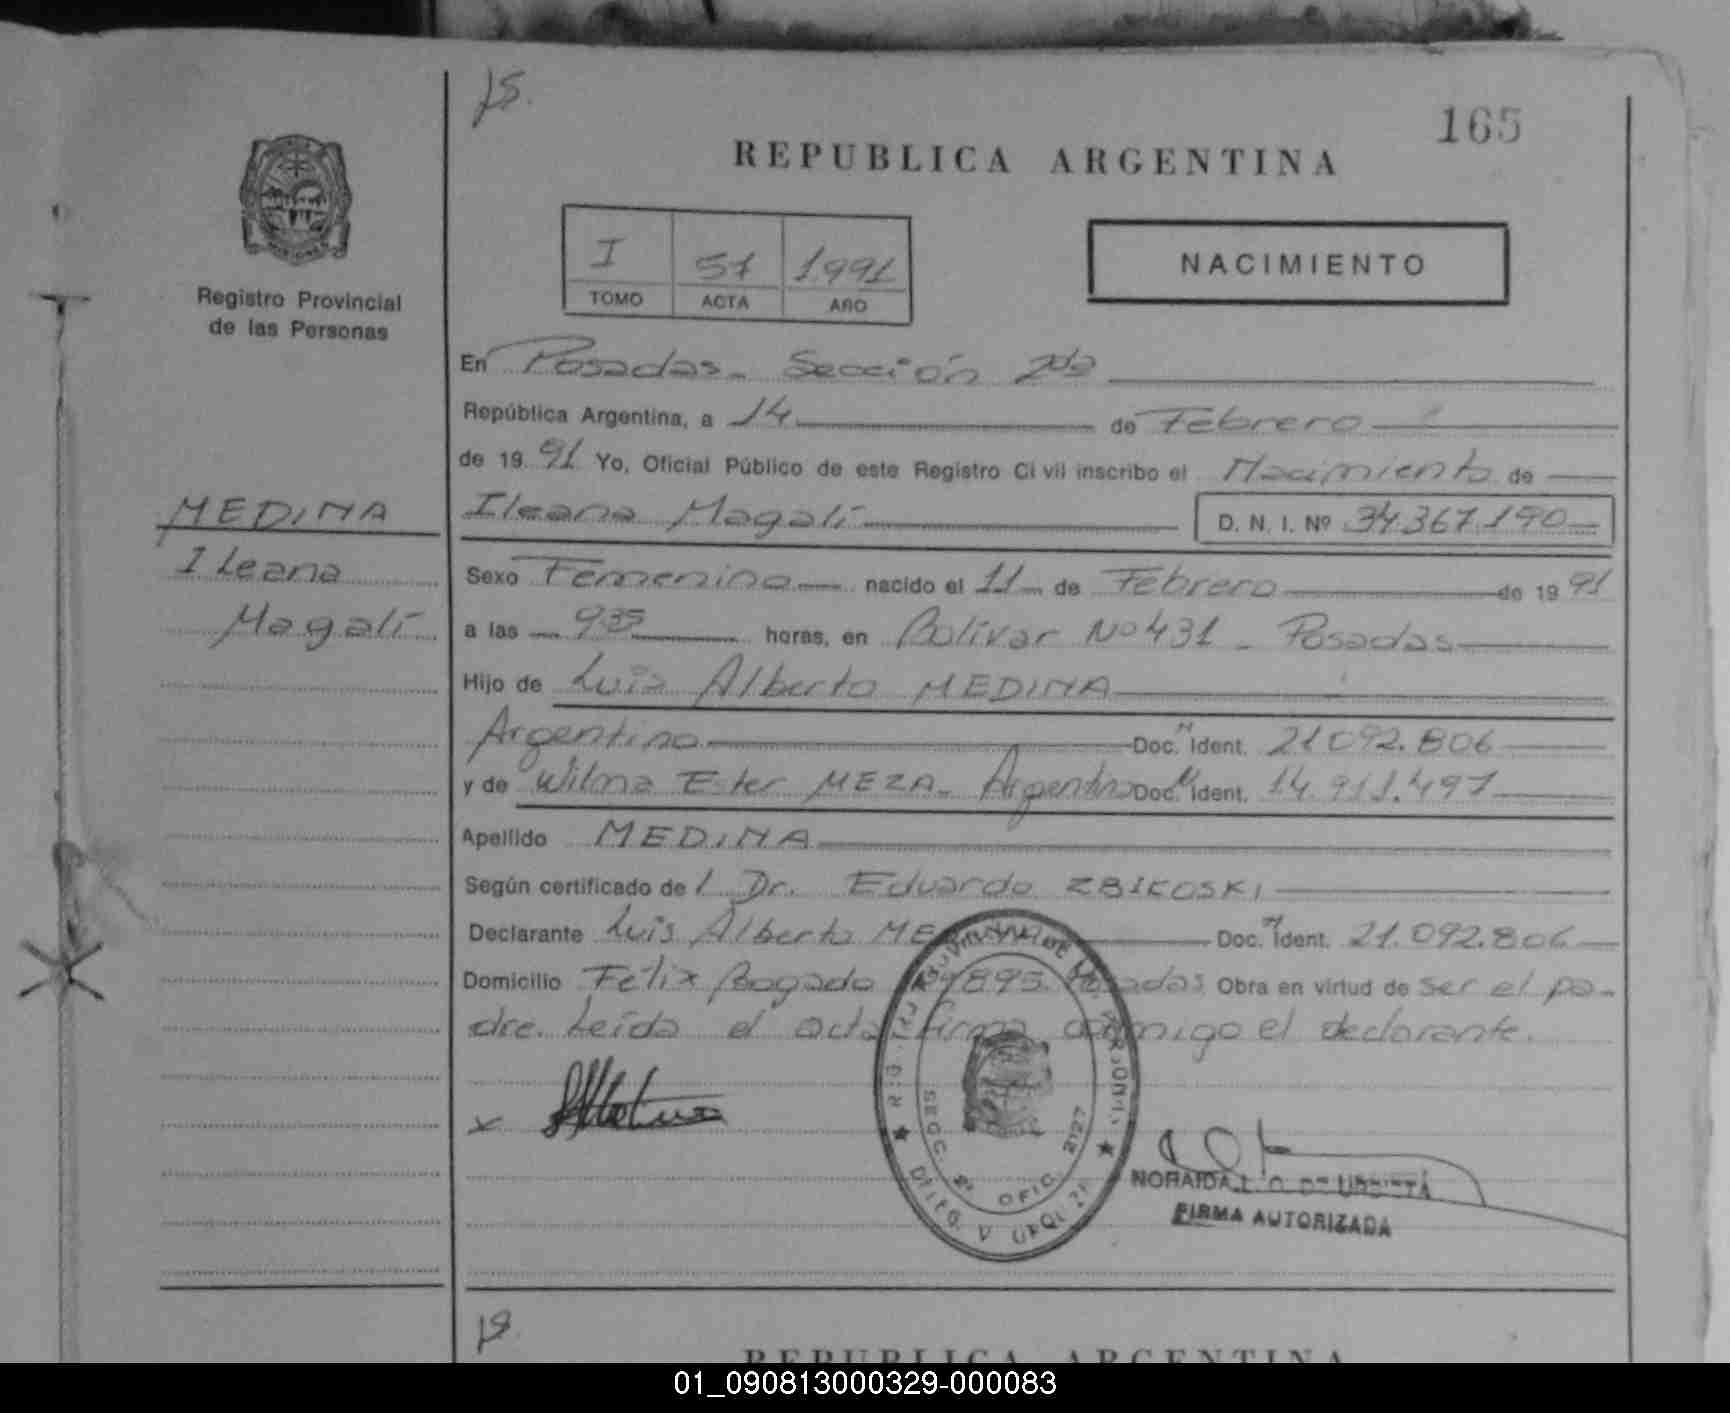 15.
165
REPUBLICA ARGENTINA
I 51 1991
TOMO ACTA AÑO
NACIMIENTO
Registro Provincial
de las Personas
En Posadas - Sección 2da
República Argentina, a 14 de Febrero
de 1991 Yo, Oficial Público de este Registro Civil inscribo el Nacimiento de
MEDINA
Ileana Magalí D. N. I. Nº 34.367.190
Ileana
Sexo Femenino nacido el 11 de Febrero de 1991
Magalí
a las 935 horas, en Bolívar Nº 431 - Posadas
Hijo de Luis Alberto MEDINA
Argentino Doc. Ident. 21.092.806
y de Wilma Ester MEZA - Argentina Doc. Ident. 14.911.497
Apellido MEDINA
Según certificado del Dr. Eduardo ZBIKOSKI
Declarante Luis Alberto ME Doc. Ident. 21.092.806
Domicilio Felix Bogado 895 Posadas Obra en virtud de ser el pa-
dre. Leída el acta firma conmigo el declarante.
x
SECC. 2ª OFIC. 2127
NORAIDA
FIRMA AUTORIZADA
19.
REPUBLICA ARGENTINA
01_090813000329-000083